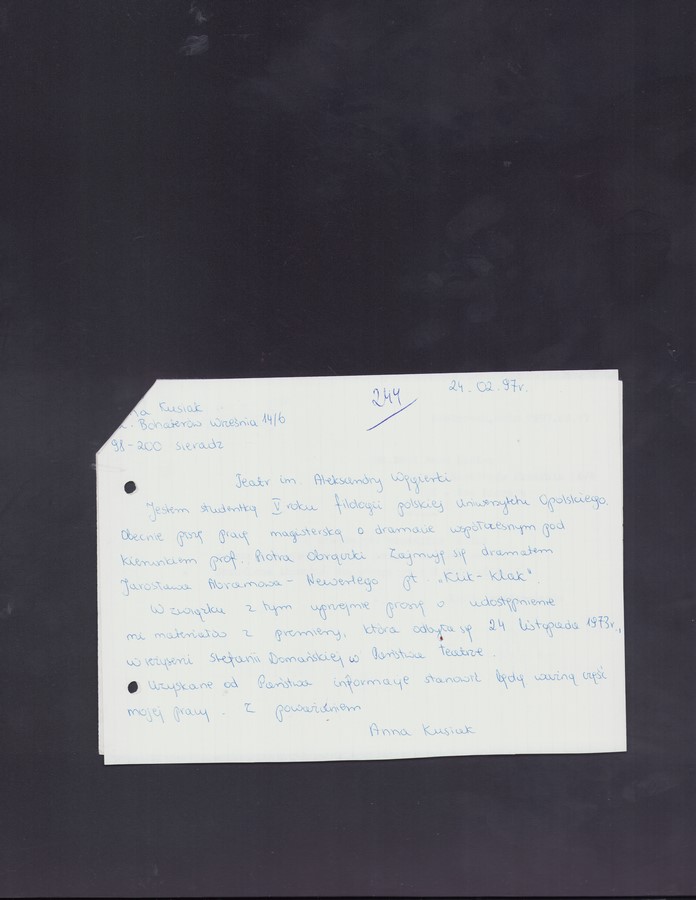 na Kusiak
Bohaterów Września 14/6
98-200 Sieradz
244
24.02.97r.
Teatr im. Aleksandry Węgierki
Jestem studentką V roku filologii polskiej Uniwersytetu Opolskiego.
Obecnie piszę pracę magisterską o dramacie współczesnym pod
kierunkiem prof. Piotra Obrączki Zajmuję się dramatem
Jarosława Abramowa-Newerlego pt. „Klik-Klak".
W związku z tym uprzejmie proszę o udostępnienie
mi materiałów z premiery, która odbyła się 24 listopada 1973r.,
w reżyserii Stefanii Domańskiej w Państwa teatrze.
Uzyskane od Państwa informacje stanowić będą ważną część
mojej pracy. Z poważaniem
Anna Kusiak